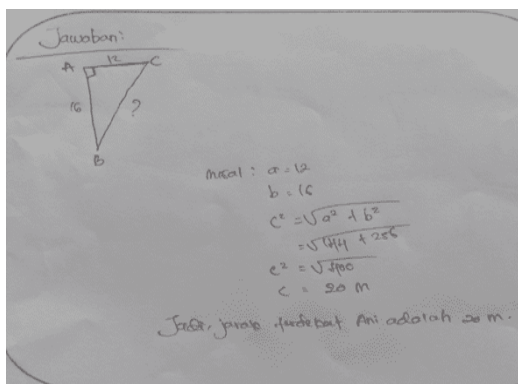 Jawaban:
12
A C
16 ?
B
misal : a = 12
b = 16
c² = √a² + b²
= √144 + 256
c² = √400
c = 20 m
Jadi, jarak terdekat Ani adalah 20 m.